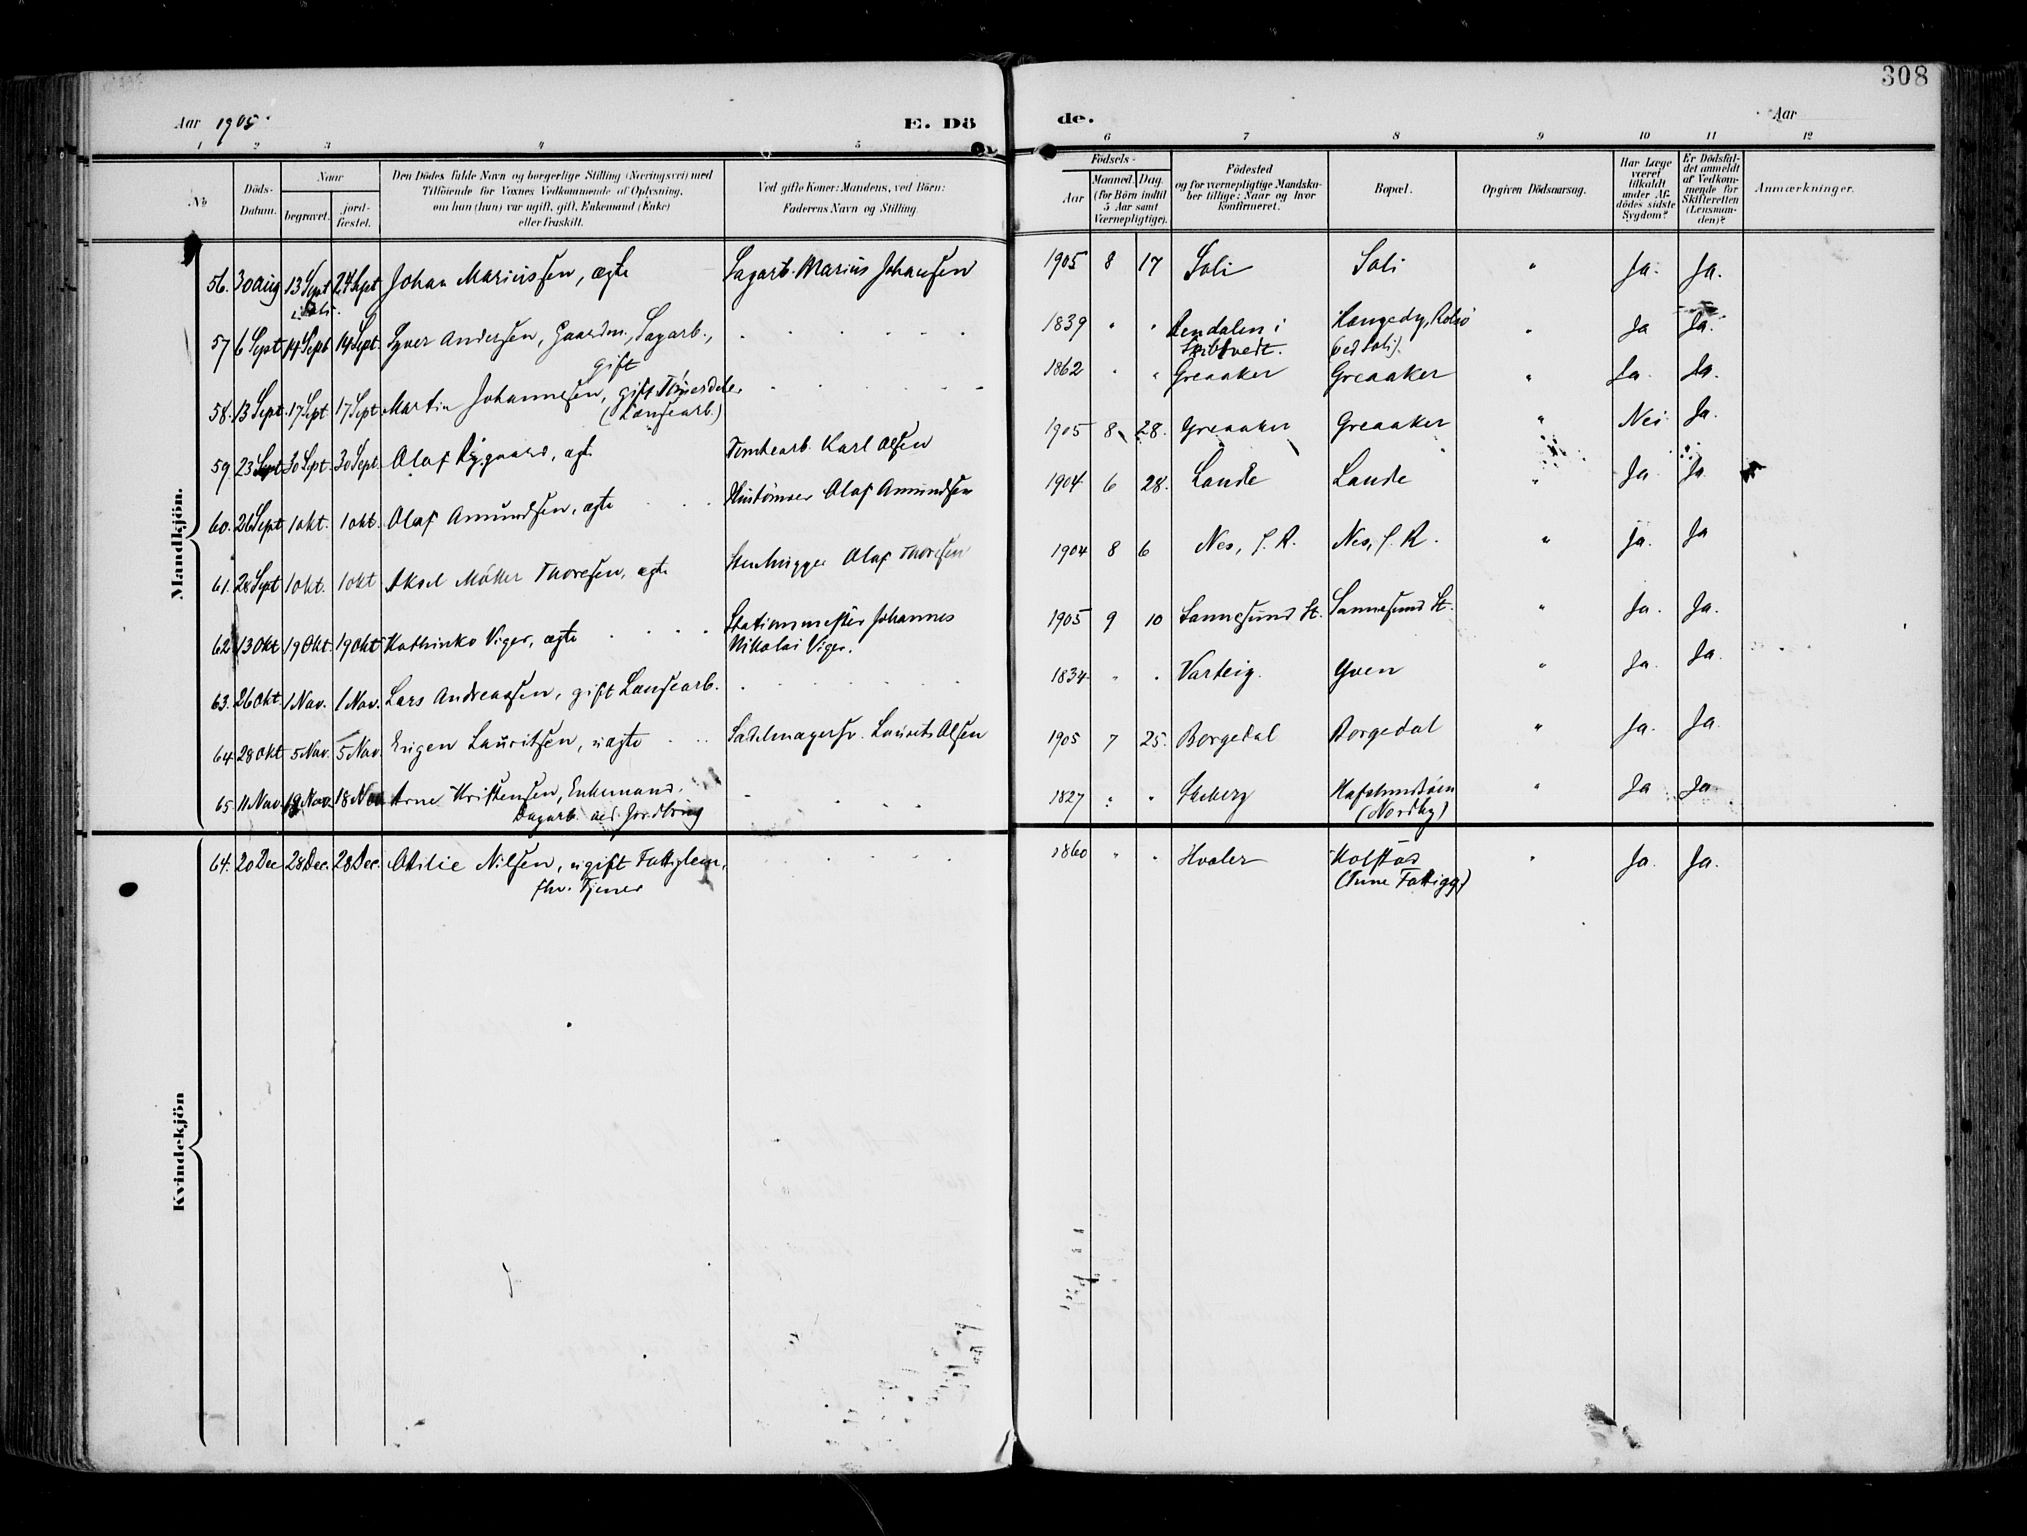 308
Aar 1905. E. Dö de. Aar
1 2 3 4 5 6 7 8 9 10 11 12
No
Döds-Datum.
Naar
begravet.
jord-fæstet.
Den Dödes fulde Navn og borgerlige Stilling (Næringsvei) med
Tilföiende for Voxnes Vedkommende af Oplysning,
om han (hun) var ugift, gift, Enkemand (Enke)
eller fraskilt.
Ved gifte Koner: Mandens, ved Börn:
Faderens Navn og Stilling.
Födsels-
Aar
Maaned. Dag.
(for Börn indtil
5 Aar samt
Værnepligtige).
Födested
og for værnepligtige Mandska-
ber tillige: Naar og hvor
konfirmeret.
Bopæl.
Opgiven Dödsaarsag.
Har Læge
været
tilkaldt
under Af-
dödes sidste
Sygdom?
Er Dödsfal-
det anmeldt
af Vedkom-
mende for
Skifteretten
(Lensman-
den)?
Anmærkninger.
Mandkjön.
56. 30 Aug 13 Sept 24 Sept Johan Mariussen, ægte Sagarb. Marius Johansen 1905 8 17 Soli Soli " Ja. Ja.
i Soli.
57 6 Sept 14 Sept 14 Sept. Syver Andersen, Gaardm., Sagarb., 1839 " " i Rolsö " Ja Ja.
gift ved Soli).
58. 13 Sept. 17 Sept 17 Sept Martin Johannesen, gift 1862 " " Greaaker Greaaker " Ja. Ja.
(Løusearb.)
59. 23 Sept 30 Sept. 30 Sept. Olaf, ægte Tomtearb. Karl Olsen 1905 8 28. Greaaker Greaaker " Nei Ja.
60. 26 Sept 1 okt. 1 okt. Olaf Amundsen, ægte Olaf Amundsen 1904 6 28. Lande Lande " Ja Ja
61. 28 Sept 1 okt. 1 okt Aksel Möller Thoresen, ægte Stenhugger Olaf Thoresen 1904 8 6 Nes, S. R. Nes, S. R. " Ja. Ja
62 13 Okt 19 Okt. 19 Okt Kathinko Viger, ægte Stationsmester Johannes 1905 9 10 Sannesund St. Sannesund St. " Ja. Ja.
Nikolai Viger.
63. 26 Okt. 1 Nov. 1 Nov. Lars Andreassen, gift Lansearb. 1834 " " Varteig. Yven " Ja. Ja.
64. 28 Okt 5 Nov. 5 Nov. Eugen Lauritsen, uægte Sadelmagersv. Laurits Olsen 1905 7 25. Borgedal Borgedal " Ja. Ja.
65. 11 Nov. 18 Nov. 18 Nov. Arne Kristensen, Enkemand, 1827 " " Skeberg Hafslundsöen " Ja Ja
Dagarb. ved Jordbrug (Nordby)
Kvindekjön
64. 20 Dec 28 Dec. 28 Dec. Otilie Nilsen, ugift Fattiglem, 1860 " " Hvaler Kolstad " Ja. Ja.
fhv. Tjener (Tune Fattigg.)